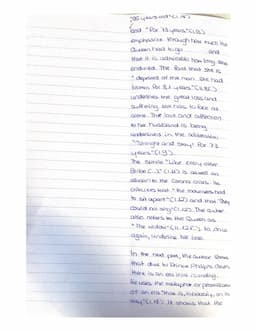 "95 years old" (l.4)
and "for 73 years" (l.9)
emphasize through how much the
Queen had to go and
that it is admirable how long she
endured. The fact that she is
"deprived of the man she had
known for 82 years" (l.8f.)
underlines the great loss and
suffering she has to face as
alone. The loss and affection
to her husband is being
underlined in the alliteration
"Strength and stay". For 73
years" (l.9).
The simile "Like every other
as well an
allusion to the Corona crisis. He
criticizes that "the mourners had
to sit apart" (l.12) and that "they
could not sing" (l.12). The author
also refers to the Queen as
"The widow" (l.12f.) to once
again, underline her loss.
In the next part, the author shows
that due to Prince Philip's death
there is an era loss ending.
He uses the metaphor or personification
of an era "that is, tenderly, on its
way" (l.18). It shows that the